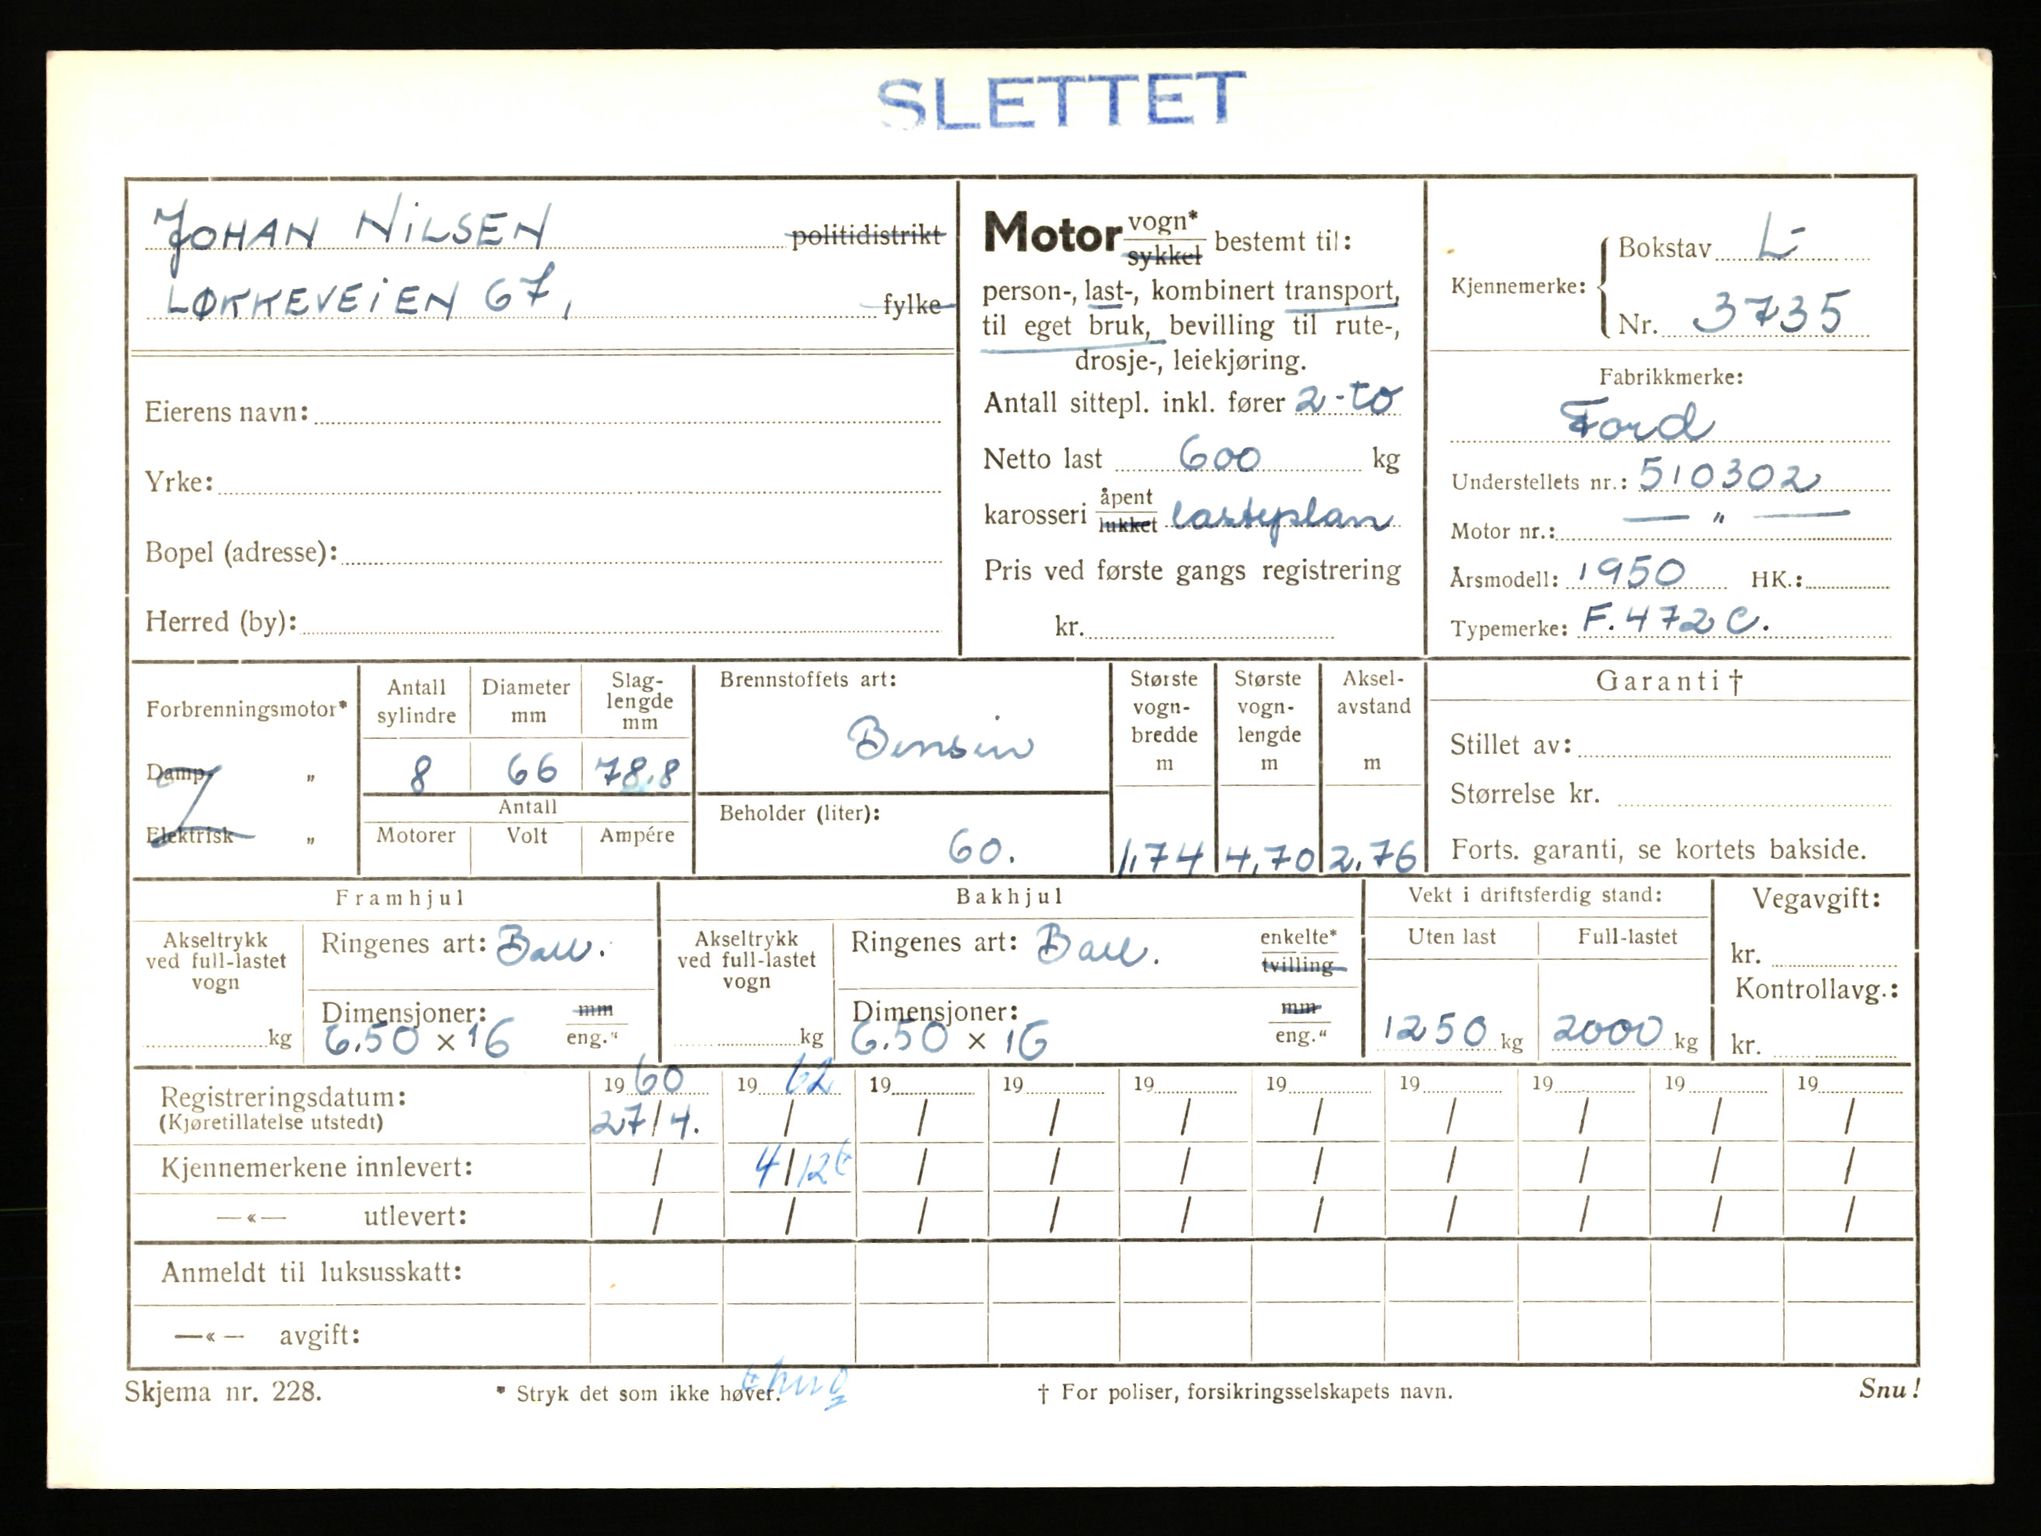 SLETTET
JOHAN NILSEN politidistrikt
LØKKEVEIEN 67, fylke
Eierens navn:
Yrke:
Bopel (adresse):
Herred (by):
Motor vogn* sykkel bestemt til:
person-, last-, kombinert transport,
til eget bruk, bevilling til rute-,
drosje-, leiekjøring.
Antall sittepl. inkl. fører 2-to
Netto last 600 kg
karosseri åpent lukket lasteplan
Pris ved første gangs registrering
kr.
Kjennemerke: Bokstav L-
Nr. 3735
Fabrikkmerke:
Ford
Understellets nr.: 510302
Motor nr.: — „ —
Årsmodell: 1950 HK.:
Typemerke: F.472C.
Forbrenningsmotor*
Damp „
Elektrisk „
Antall sylindre
8
Diameter mm
66
Slag-
lengde
mm
78.8
Antall
Motorer Volt Ampére
Brennstoffets art:
Bensin
Beholder (liter):
60.
Største
vogn-
bredde
m
1,74
Største
vogn-
lengde
m
4,70
Aksel-
avstand
m
2.76
Garanti †
Stillet av:
Størrelse kr.
Forts. garanti, se kortets bakside.
Framhjul
Akseltrykk
ved full-lastet
vogn
kg
Ringenes art: Ball.
Dimensjoner: mm
6.50 × 16 eng."
Bakhjul
Akseltrykk
ved full-lastet
vogn
kg
Ringenes art: Ball. enkelte* tvilling
Dimensjoner: mm
6.50 × 16 eng."
Vekt i driftsferdig stand:
Uten last Full-lastet
1250 kg 2000 kg
Vegavgift:
kr.
Kontrollavg.:
kr.
1960 1962 19 19 19 19 19 19 19 19
Registreringsdatum:
(Kjøretillatelse utstedt) 27/4. / / / / / / / / /
Kjennemerkene innlevert: / 4/12 / / / / / / / /
—«— utlevert: / / / / / / / / / /
Anmeldt til luksusskatt:
—«— avgift:
Skjema nr. 228. * Stryk det som ikke høver. † For poliser, forsikringsselskapets navn. Snu!